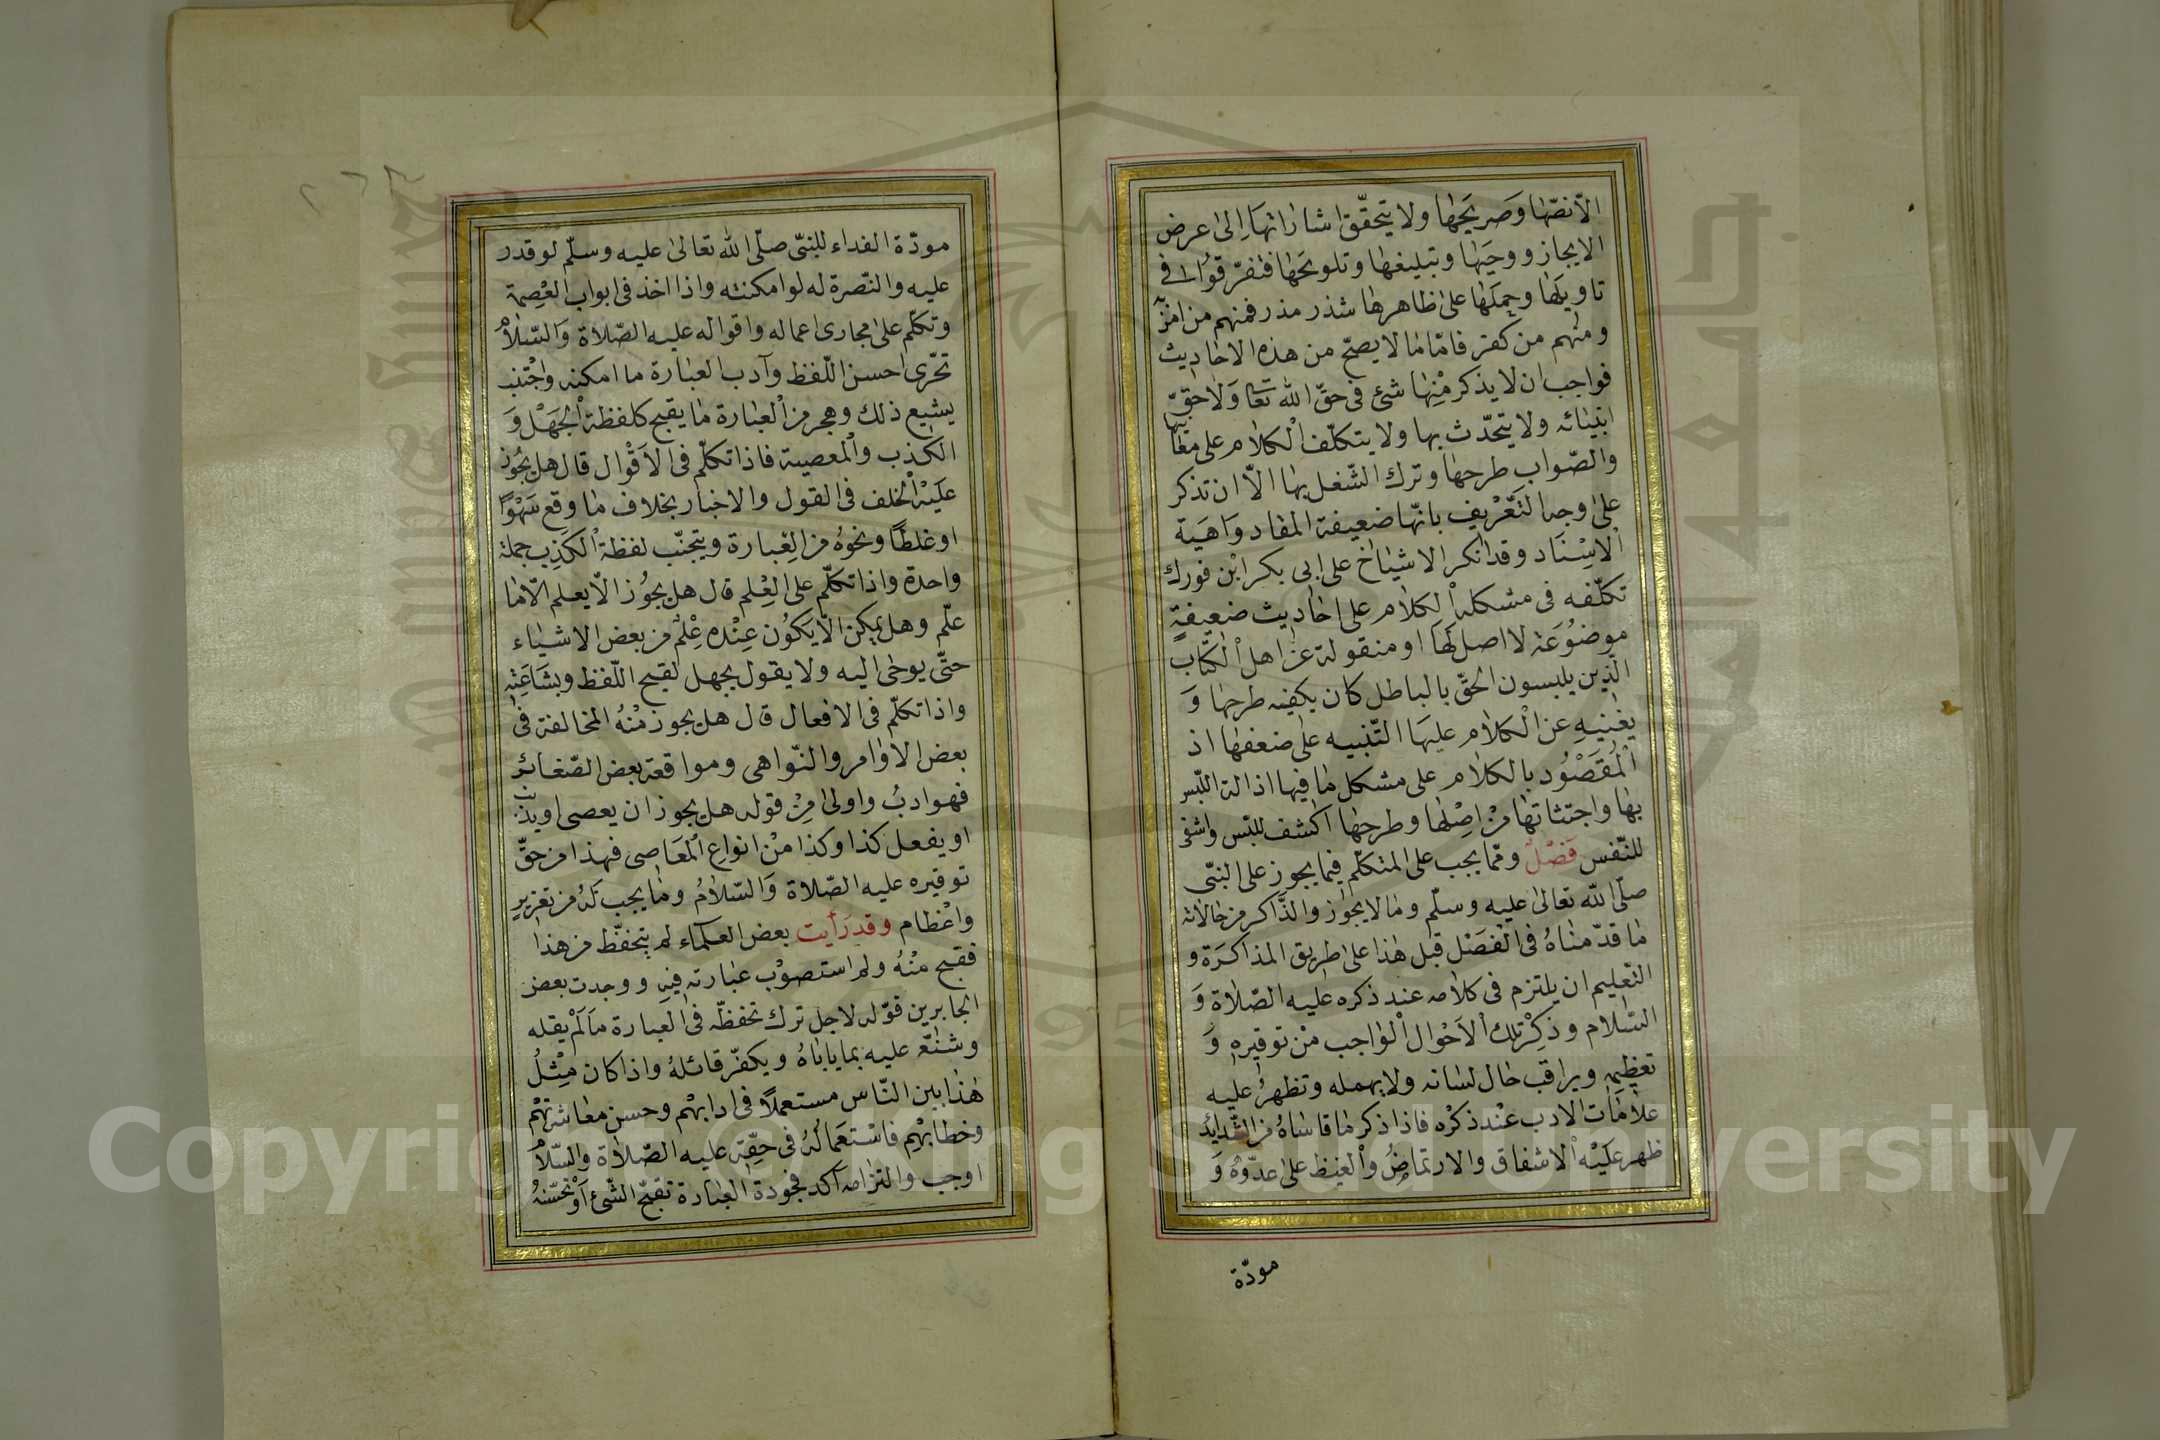 الّا نصّها وصريحها ولا يتحقّق اشاراتها الى عرض
الايجاز ووحيها وتبليغها وتلويحها فتفرّقوا في
تاويلها وحملها على ظاهرها شذر مذر فمنهم من امن به
ومنهم من كفر فامّا ما لا يصحّ من هذه الاحاديث
فواجب ان لا يذكر منها شئ في حقّ الله تعا ولا حقّ
انبيائه ولا يتحدّث بها ولا يتكلّف الكلام على معانيها
والصّواب طرحها وترك الشّغل بها الّا ان تذكر
على وجه التّعريف بانّها ضعيفة المقاد واهية
الاسناد وقد انكر الاشياخ على ابى بكر ابن فورك
تكلّفه فى مشكله الكلام على احاديث ضعيفة
موضوعة لا اصل لها او منقولة عن اهل الكتاب
الّذين يلبسون الحقّ بالباطل كان يكفيه طرحها و
يغنيه عن الكلام عليها التّنبيه على ضعفها اذ
المقصود بالكلام على مشكل ما فيها اذالة اللّبس
بها واجتثاثها من اصلها وطرحها اكشف للبس واشفى
للنّفس فصل وممّا يجب على المتكلّم فيما يجوز على النبّى
صلّى الله تعالى عليه وسلّم وما لا يجوز والذّاكر من حالاته
ما قدّمناه فى الفصل قبل هذا على طريق المذاكرة و
التّعليم ان يلتزم فى كلامه عند ذكره عليه الصّلاة و
السّلام وذكر تلك الاحوال الواجب من توقيره و
تعظيمه ويراقب حال لسانه ولا يهمله وتظهر عليه
علامات الادب عند ذكره فاذا ذكر ما قاساه من الشّدائد
ظهر عليه الاشفاق والارتماض والغيظ على عدّوه و
مودّة
مودّة الفداء للنبّى صلّى الله تعالى عليه وسلّم لو قدر
عليه والنّصرة له لو امكنته واذا اخذ فى ابواب العصمة
وتكلّم على مجارى اعماله واقواله عليه الصّلاة والسّلام
تحّرى احسن اللّفظ وآدب العبارة ما امكنه واجتنب
بشيع ذلك وهجر من العبارة ما يقبح كلفظة الجهل و
الكذب والمعصية فاذا تكلّم فى الاقوال قال هل يجوز
عليه الخلف فى القول والاخبار بخلاف ما وقع سهوًا
او غلطًا ونحوه من العبارة ويتجنّب لفظة الكذب جملة
واحدة واذا تكلّم على العلم قال هل يجوز الّا يعلم الّا ما
علّم وهل يمكن الّا يكون عنده علم من بعض الاشياء
حتّى يوحى اليه ولا يقول بجهل لقبح اللّفظ وبشاعته
واذا تكلّم فى الافعال قال هل يجوز منه المخالفة فى
بعض الاوامر والنّواهى ومواقعة بعض الصّغائر
فهو ادب واولى من قوله هل يجوز ان يعصى او يذنب
او يفعل كذا وكذا من انواع المعاصى فهذا من حقّ
توقيره عليه الصّلاة والسّلام وما يجب له من تعزير
واعظام وقد رأيت بعض العلماء لم يتحفّظ من هذا
فقبح منه ولم استصوب عبارته فيه ووجدت بعض
الجابرين قوّله لاجل ترك تحفظّه فى العبارة ما لم يقله
وشنّع عليه بما ياباه ويكفّر قائله واذا كان مثل
هذا بين النّاس مستعملًا فى ادابهم وحسن معاشرتهم
وخطابهم فاستعماله فى حقّه عليه الصّلاة والسّلام
اوجب والتزامه آكد فجودة العبارة تقبّح الشّئ او تحسّنه
Copyright © King Saud University